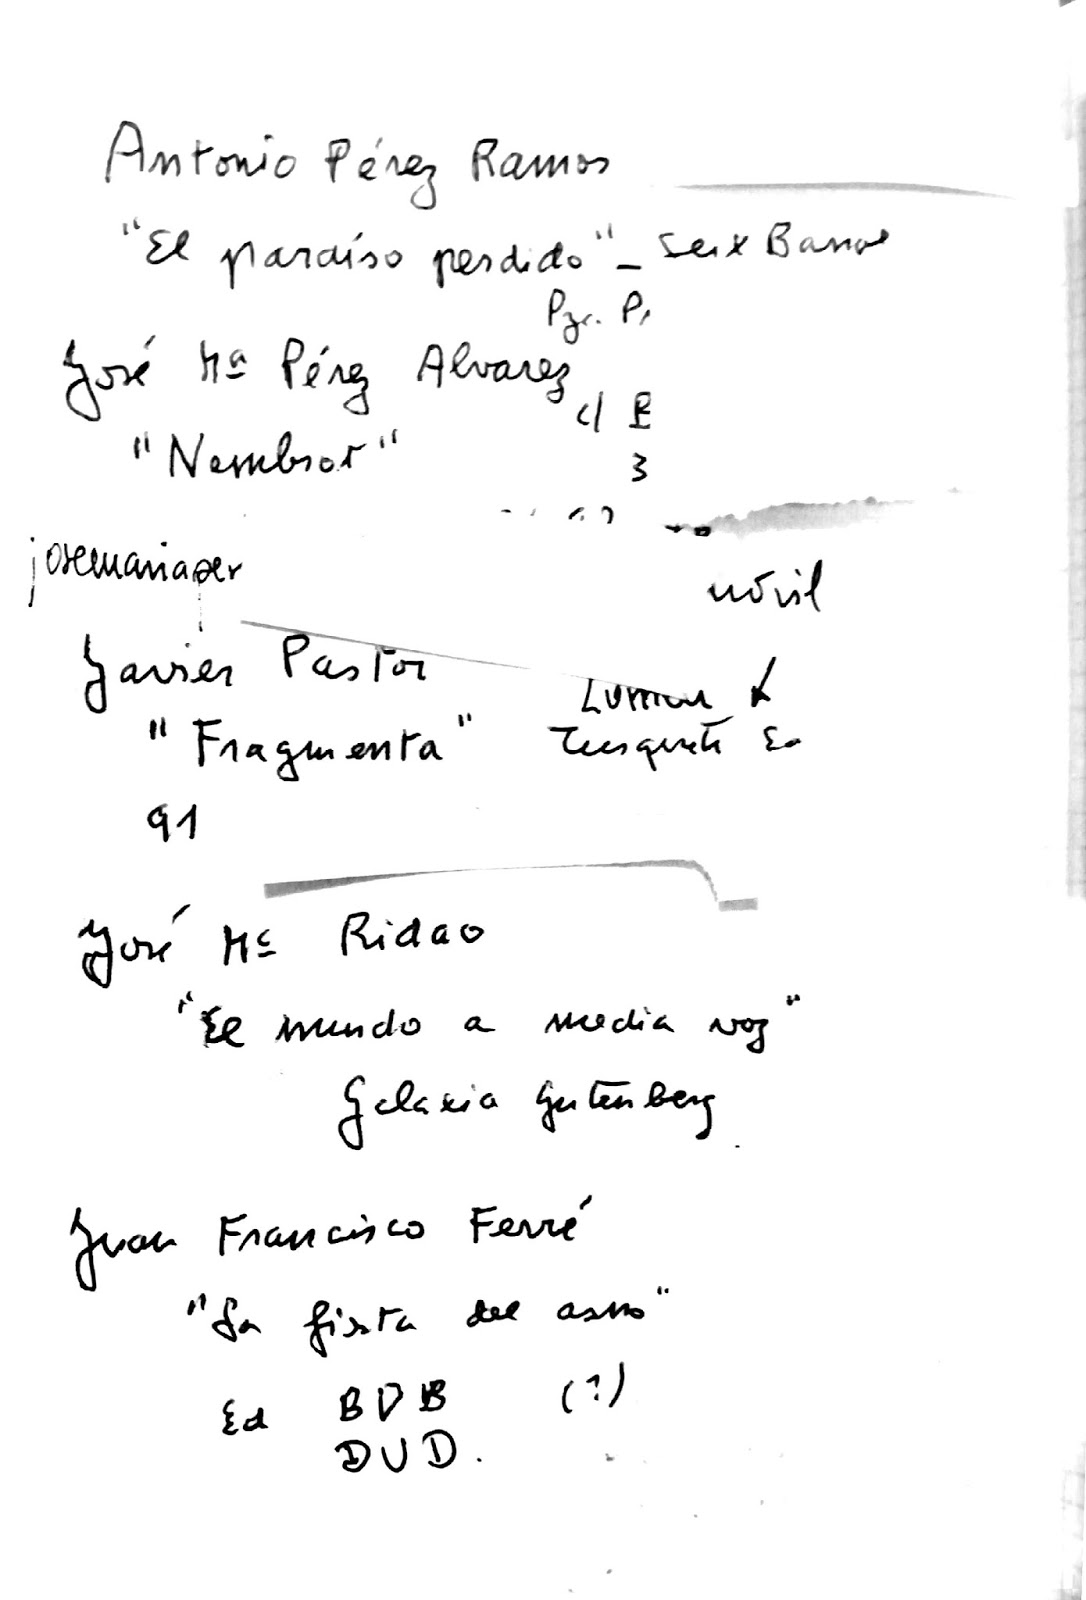 Antonio Pérez Ramos
"El paraíso perdido" - Seix Barral
Pza. P.
José Mª Pérez Alvarez
c/ E
"Nembrot"
3
josemariaper
móvil
Javier Pastor
Lumen
"Fragmenta" Tusquets Ed
91
José Mª Ridao
"El mundo a media voz"
Galaxia Gutenberg
Juan Francisco Ferré
"La fiesta del asno"
Ed BVB (?)
DVD.